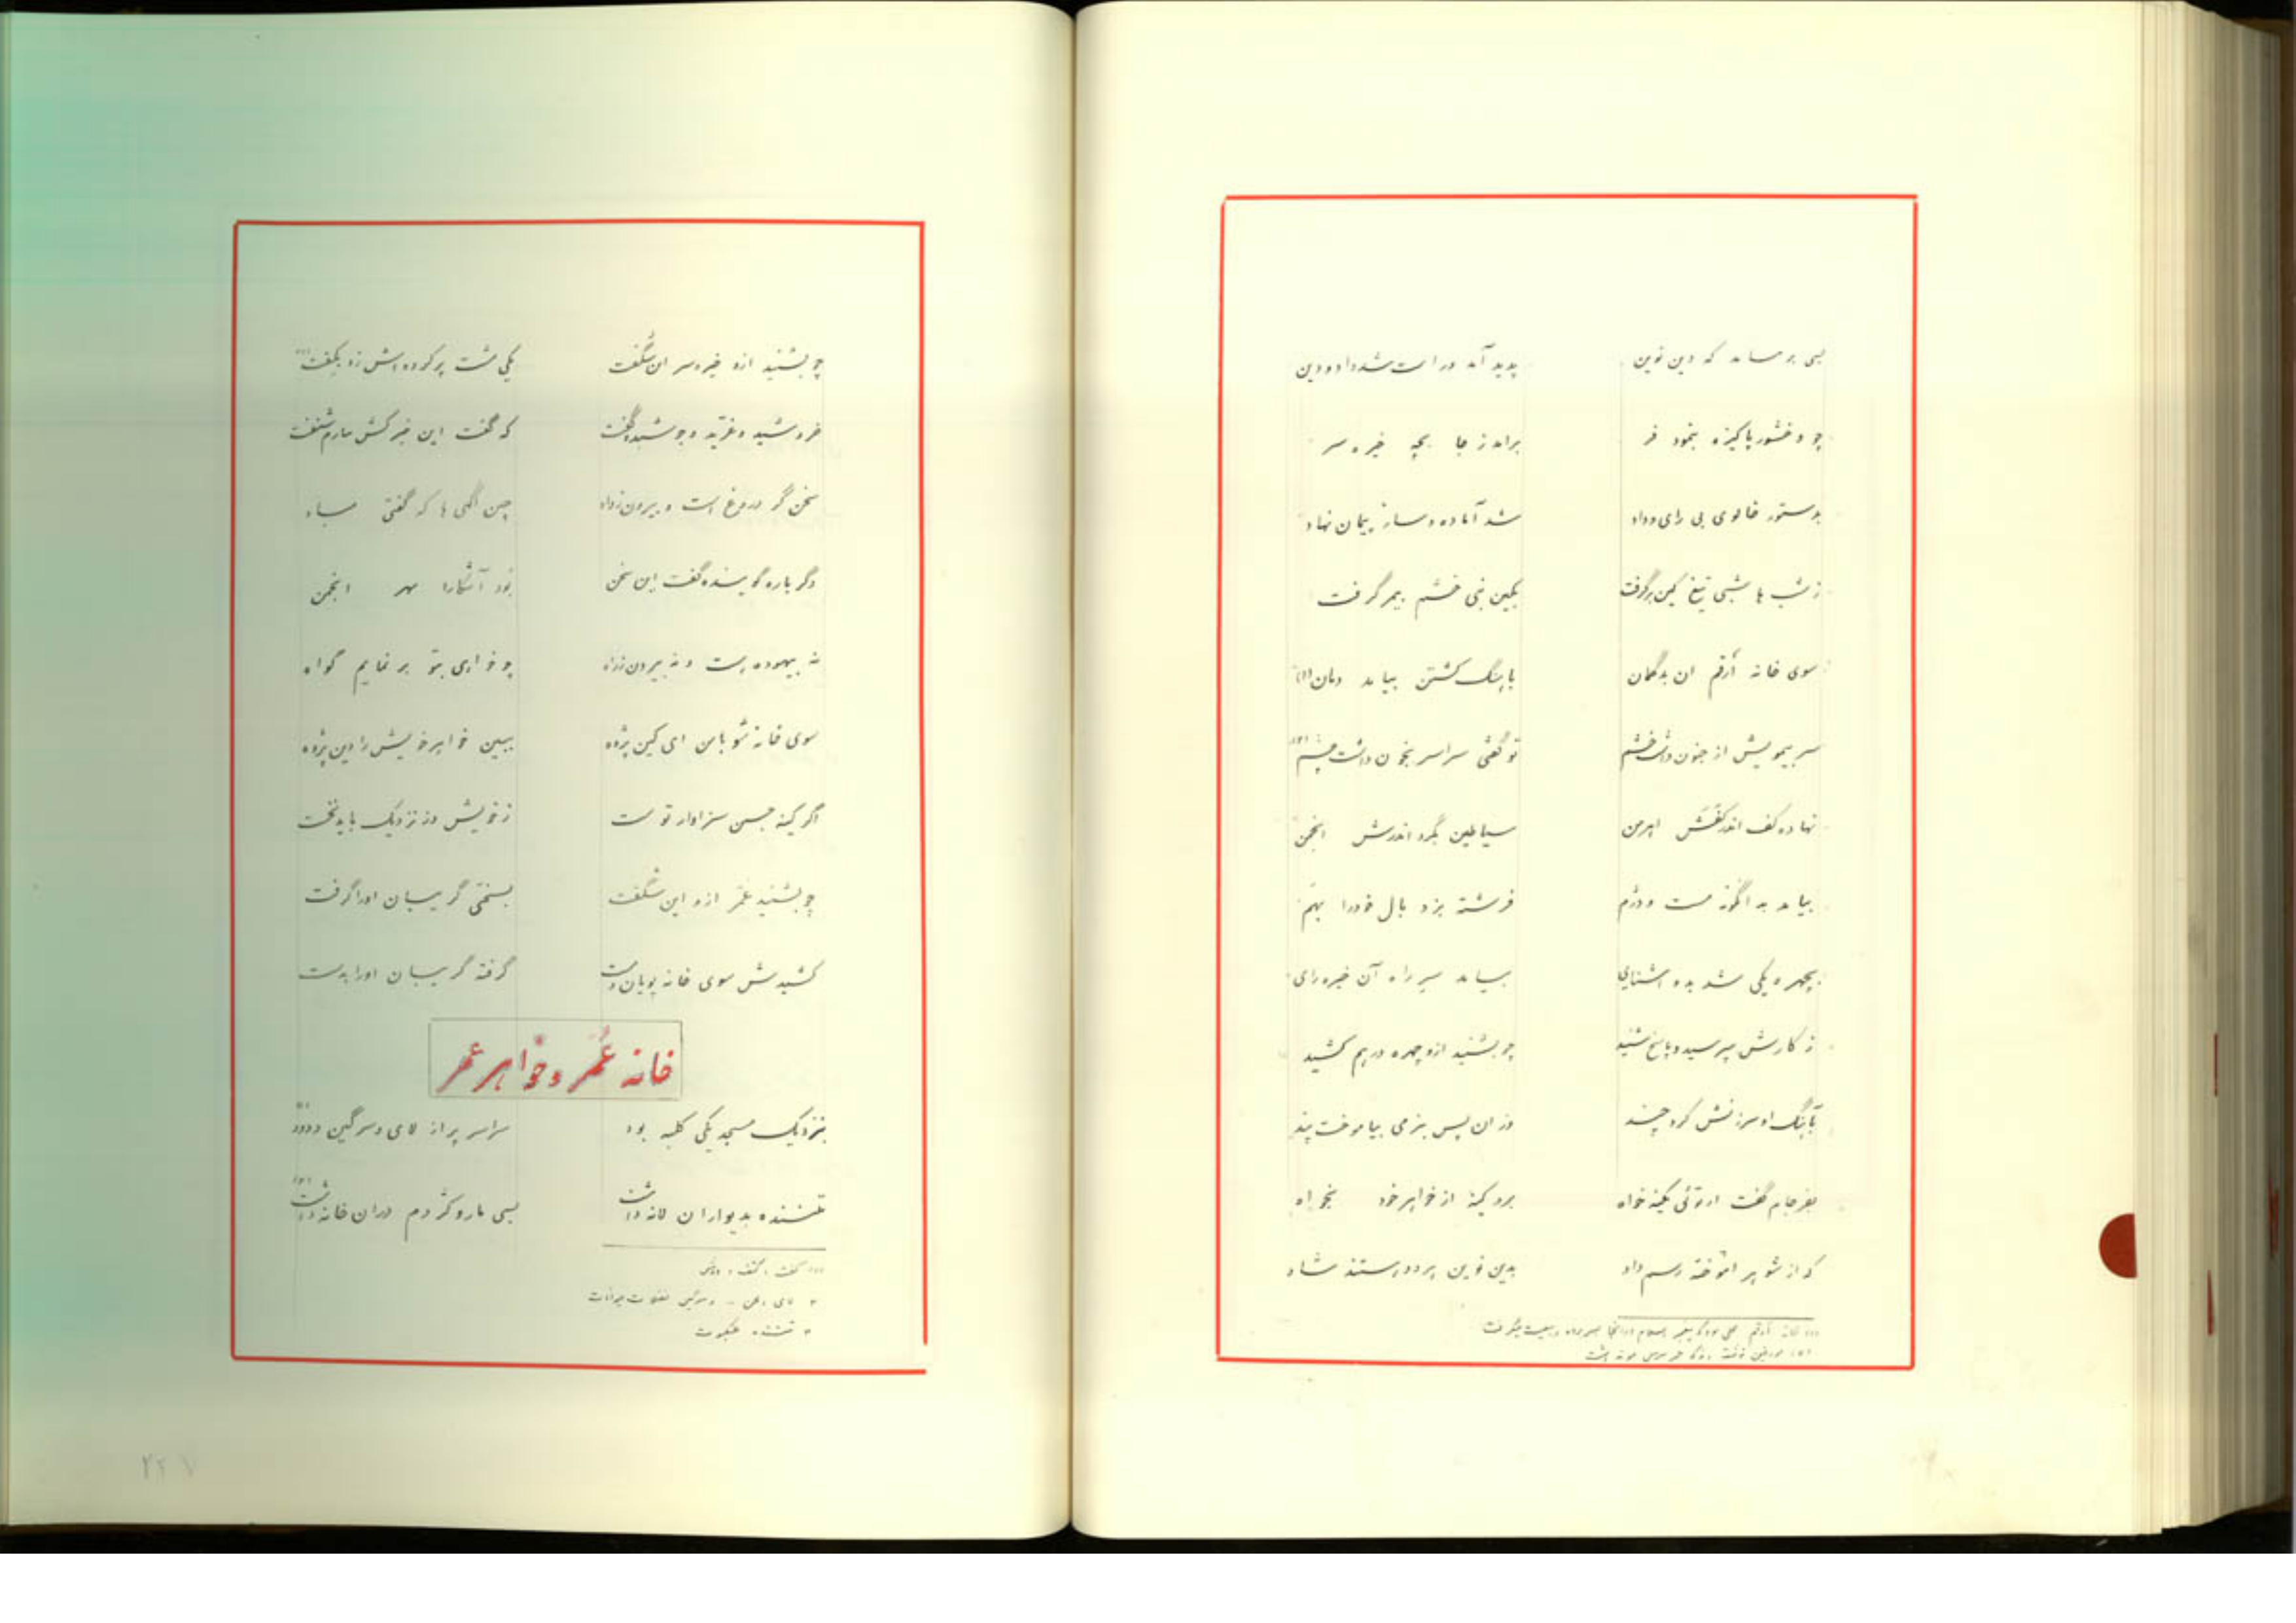 بسی بر سامد که دین نوین پدید آمد و راست شد داد و دین
چو وخشور پاکیزه بنمود فر برآمد ز جا بچه خیره سر
بدستور خالوی بی رای و داد شد آماده و ساز پیمان نهاد
ز شب ها شبی تیغ کین برگرفت بکین نبی خشم بیمر گرفت
سوی خانه اَرقم ان بدگمان باهنگ کشتن بیامد دمان (۱)
سر بیمویش از جنون داشت خشم تو گفتی سراسر بخون داشت چشم (۲)
نهاده کف اندر کفش اهرمن سیاطین بگرد اندرش انجمن
بیامد بدانگونه مست و دژم فرشته بزد بال خود را بهم
بچهره یکی شد بدو اشنای بیامد سر راه آن خیره رای
ز کارش بپرسید و پاسخ شنید چو بشنید ازو چهره درهم کشید
باهنگ او سرزنش کرد چند وز ان پس بنرمی بیاموخت پند
بفرجام گفت ار توئی کینه خواه برو کینه از خواهر خود بخواه
که از شوهر اموخته رسم داد بدین نوین هر دو هستند شاد
(۱) خانه اَرقم پیغمبر اسلام در انجا بیعت میگرفت
(۲)
چو بشنید ازو خیره سر ان شگفت یکی مشت پر کرده اش زد بکفت (۱)
خروشید و غرّید و جوشید و گفت که گفت این خبر کش نیارم شنفت
سخن گر دروغ است و بیرون ز راه چنین آگهی ها که گفتی سیاه
دگر باره گوینده گفت این سخن بُود آشکارا بهر انجمن
نه بیهوده است و نه بیرون ز راه چو خواهی بتو بر نمایم گواه
سوی خانه شو با من ای کین پژوه ببین خواهر خویش را دین پژوه
اگر کینه جستن سزاوار توست ز خویش و ز نزدیک باید نخست
چو بشنید عُمَر ازو این شگفت بسختی گریبان او را گرفت
کشیدش سوی خانه پویان و مست گرفته گریبان او را بدست
خانه عُمَر و خواهر عمر
بنزدیک مسجد یکی کلبه بود سراسر پر از لای و سرگین و دود (۲)
تننده بدیواران لانه داشت بسی مار و کژدم دران خانه داشت (۳)
(۱) کفت ، کتف ، دوش
۲ لای ، لجن - و سرگین فضلات حیوانات
۳ تننده عنکبوت
۲۲۷